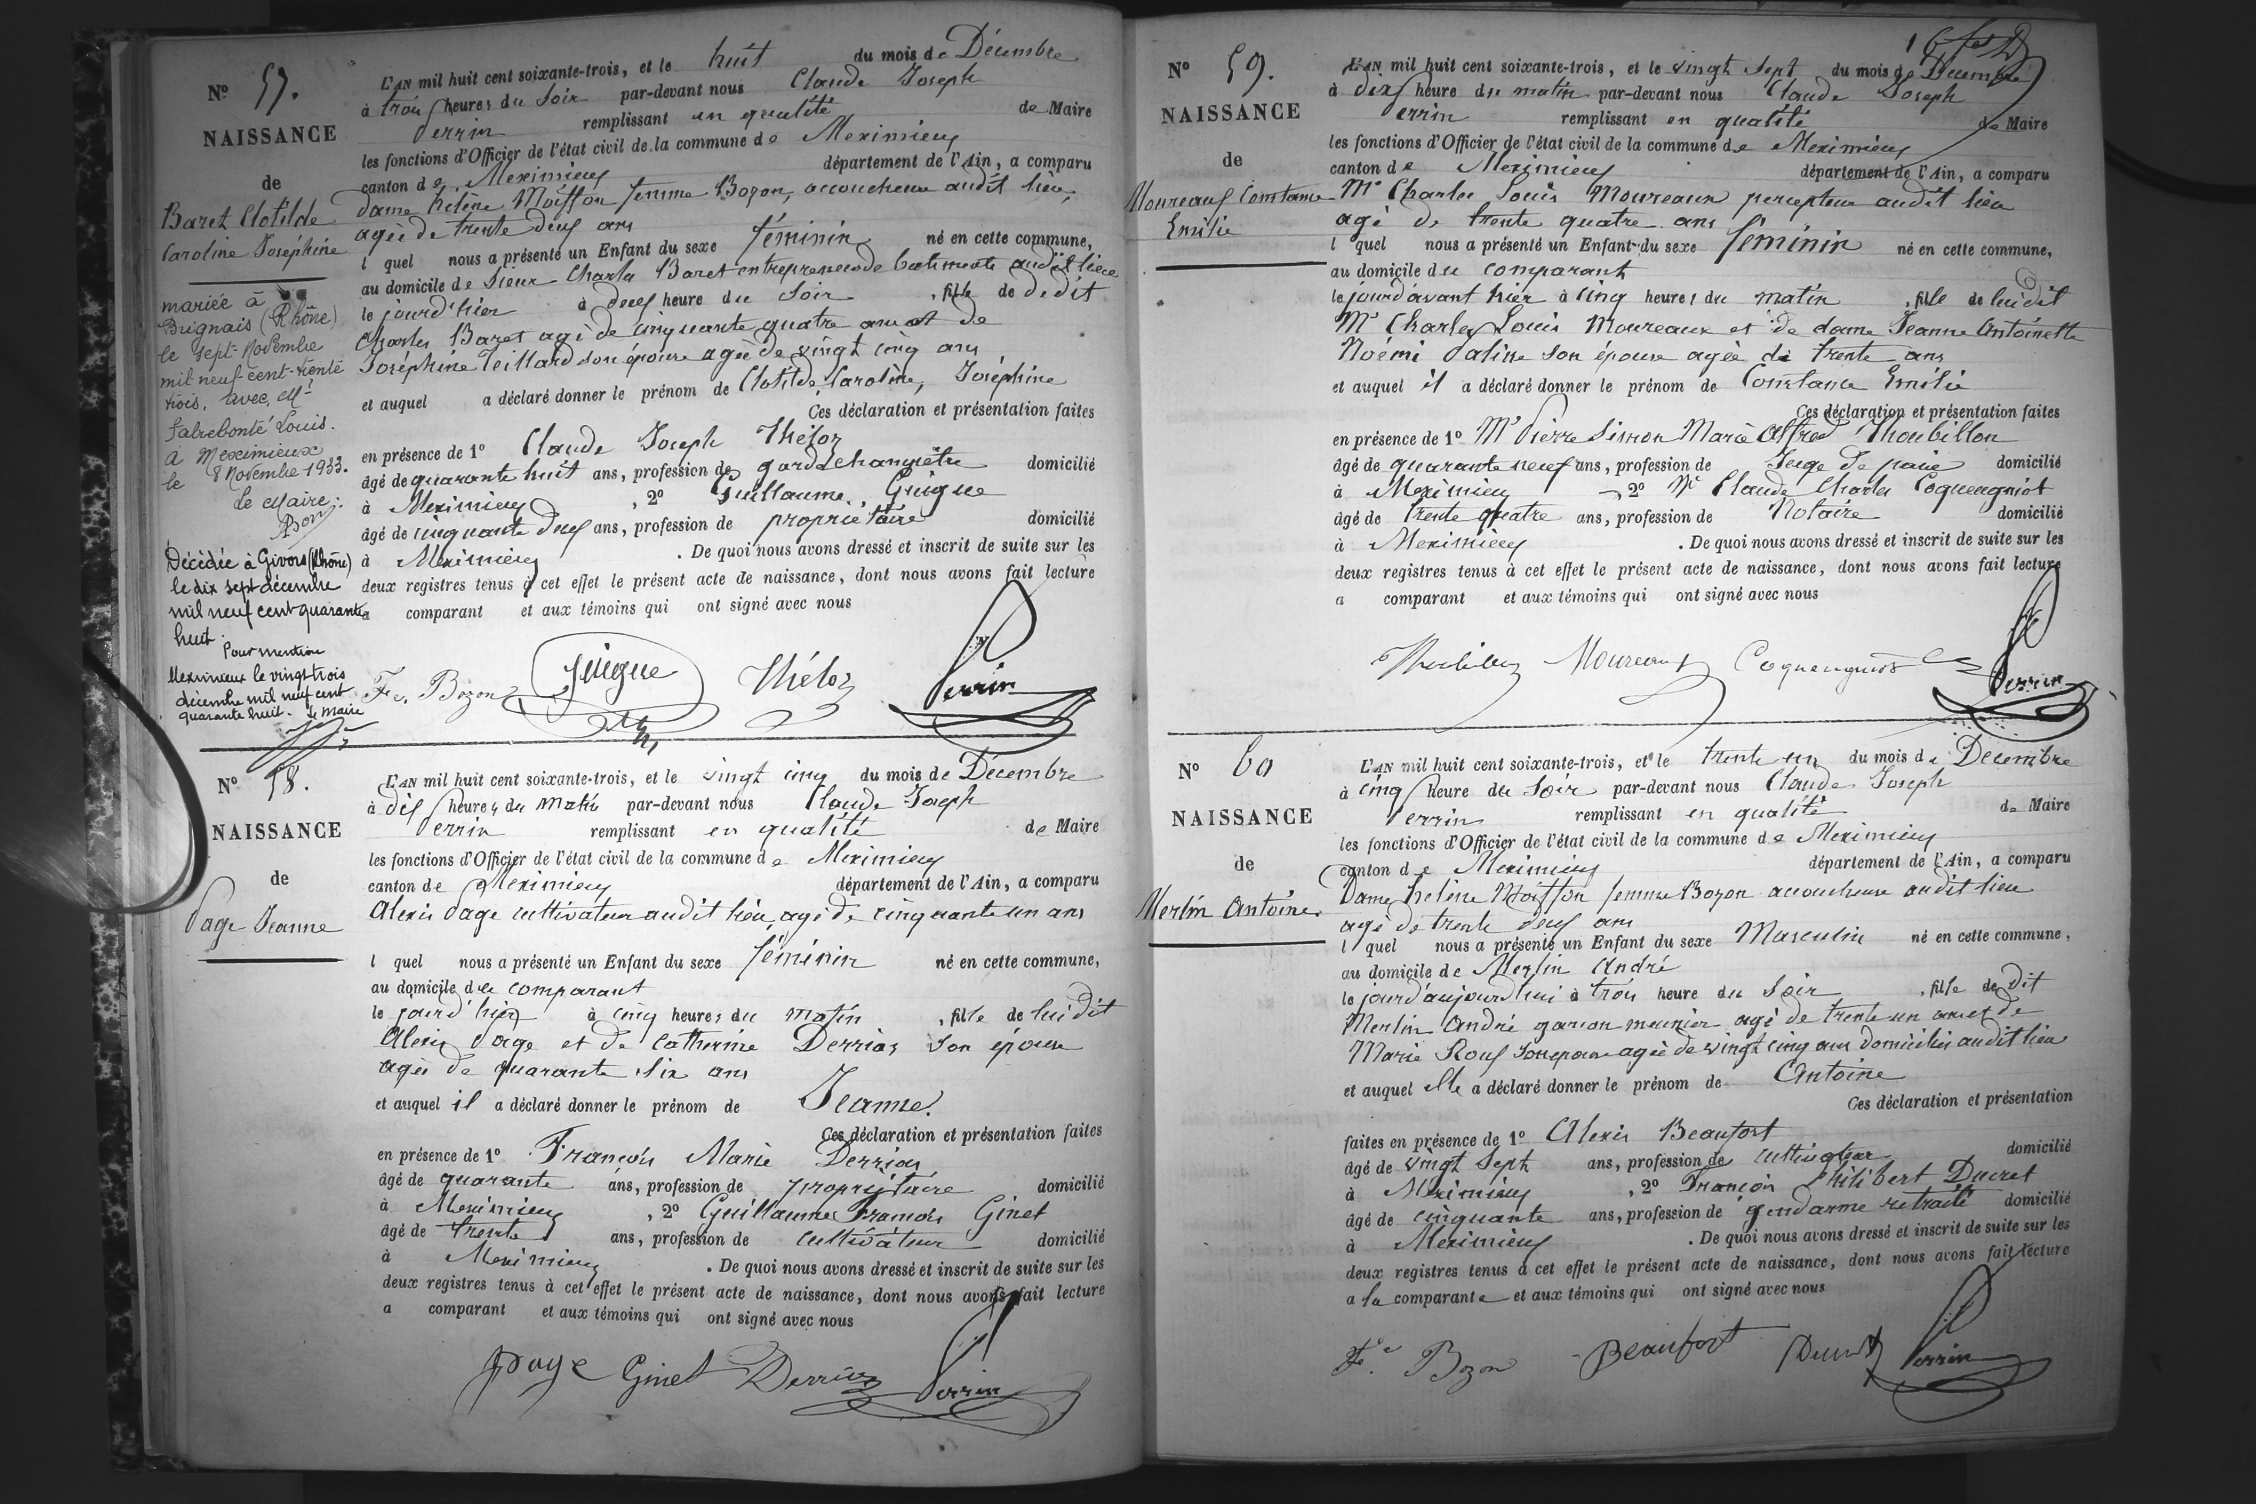 N° 57.
NAISSANCE
de
Baret Clotilde
Caroline Joséphine
mariée à
Brignais (Rhône)
le sept Novembre
mil neuf cent trente
trois, avec Mr
Falrebonté Louis.
à Meximieux
le 8 Novembre 1933.
Le Maire:
Décédée à Givors (Rhône)
le dix sept décembre
mil neuf cent quarante
huit.
Pour mention
Meximieux le vingt trois
décembre mil neuf cent
quarante huit. Le Maire
L'AN mil huit cent soixante-trois, et le huit du mois de Décembre
à trois heures du Soir par-devant nous Claude Joseph
Perrin remplissant en qualité de Maire
les fonctions d'Officier de l'état civil de la commune de Meximieux
canton de Meximieux département de l'Ain, a comparu
dame hélène Moiffon femme Bozon, accoucheuse audit lieu,
agée de trente deux ans
l quel nous a présenté un Enfant du sexe féminin né en cette commune,
au domicile de Sieur Charles Baret entrepreneur de batiments audit lieu
le jour d'hier à deux heure du Soir , fille de dedit
Charles Baret agé de cinquante quatre ans et de
Joséphine Teillard son épouse agée de vingt cinq ans
et auquel a déclaré donner le prénom de Clotilde, Caroline, Joséphine
Ces déclaration et présentation faites
en présence de 1° Claude Joseph Théloz
âgé de quarante huit ans, profession de garde champêtre domicilié
à Meximieux , 2° Guillaume Guigue
âgé de cinquante deux ans, profession de propriétaire domicilié
à Meximieux . De quoi nous avons dressé et inscrit de suite sur les
deux registres tenus à cet effet le présent acte de naissance, dont nous avons fait lecture
a comparant et aux témoins qui ont signé avec nous
Fe. Bozon Guigue Théloz Perrin
N° 58.
NAISSANCE
de
Page Jeanne
L'AN mil huit cent soixante-trois, et le vingt cinq du mois de Décembre
à dix heures du matin par-devant nous Claude Joseph
Perrin remplissant en qualité de Maire
les fonctions d'Officier de l'état civil de la commune de Meximieux
canton de Meximieux département de l'Ain, a comparu
Alexis Page cultivateur audit lieu, agé de cinquante un ans
l quel nous a présenté un Enfant du sexe féminin né en cette commune,
au domicile du comparant
le jour d'hier à cinq heures du matin , fille de lui dit
Alexis Page et de Catherine Derrias son épouse
agée de quarante six ans
et auquel il a déclaré donner le prénom de Jeanne.
Ces déclaration et présentation faites
en présence de 1° François Marie Derrias
âgé de quarante ans, profession de propriétaire domicilié
à Meximieux , 2° Guillaume François Ginet
âgé de trente ans, profession de cultivateur domicilié
à Meximieux . De quoi nous avons dressé et inscrit de suite sur les
deux registres tenus à cet effet le présent acte de naissance, dont nous avons fait lecture
a comparant et aux témoins qui ont signé avec nous
page Ginet Derrias Perrin
N° 59.
NAISSANCE
de
Moureaux Constance
Emilie
L'AN mil huit cent soixante-trois, et le vingt sept du mois de Décembre
à dix heure du matin par-devant nous Claude Joseph
Perrin remplissant en qualité de Maire
les fonctions d'Officier de l'état civil de la commune de Meximieux
canton de Meximieux département de l'Ain, a comparu
Mr Charles Louis Moureaux percepteur audit lieu
agé de trente quatre ans
l quel nous a présenté un Enfant du sexe féminin né en cette commune,
au domicile du comparant
le jour d'avant hier à cinq heures du matin , fille de lui dit
Mr Charles Louis Moureaux et de dame Jeanne Antoinette
Noémi Paline son épouse agée de trente ans
et auquel il a déclaré donner le prénom de Constance Emilie
Ces déclaration et présentation faites
en présence de 1° Mr Pierre Simon Marie Alfred Thoubillon
âgé de quarante neuf ans, profession de Juge de paix domicilié
à Meximieux , 2° Mr Claude Charles Coquengniot
âgé de trente quatre ans, profession de Notaire domicilié
à Meximieux . De quoi nous avons dressé et inscrit de suite sur les
deux registres tenus à cet effet le présent acte de naissance, dont nous avons fait lecture
a comparant et aux témoins qui ont signé avec nous
Moureaux Coquengniot Perrin
N° 60
NAISSANCE
de
Merlin Antoine
L'AN mil huit cent soixante-trois, et le trente un du mois de Décembre
à cinq heure du Soir par-devant nous Claude Joseph
Perrin remplissant en qualité de Maire
les fonctions d'Officier de l'état civil de la commune de Meximieux
canton de Meximieux département de l'Ain, a comparu
Dame hélène Moiffon femme Bozon accoucheuse audit lieu
agé de trente deux ans
l quel nous a présenté un Enfant du sexe Masculin né en cette commune,
au domicile de Merlin André
le jour d'aujourd'hui à trois heure du Soir , fils de dit
Merlin André garçon meunier agé de trente un ans et de
Marie Roux son epouse agée de vingt cinq ans domiciliés audit lieu
et auquel elle a déclaré donner le prénom de Antoine
Ces déclaration et présentation
faites en présence de 1° Alexis Beaufort
âgé de vingt sept ans, profession de cultivateur domicilié
à Meximieux , 2° François Philibert Ducret
âgé de cinquante ans, profession de gendarme retraité domicilié
à Meximieux . De quoi nous avons dressé et inscrit de suite sur les
deux registres tenus à cet effet le présent acte de naissance, dont nous avons fait lecture
a la comparante et aux témoins qui ont signé avec nous
Fe. Bozon Beaufort Ducret Perrin